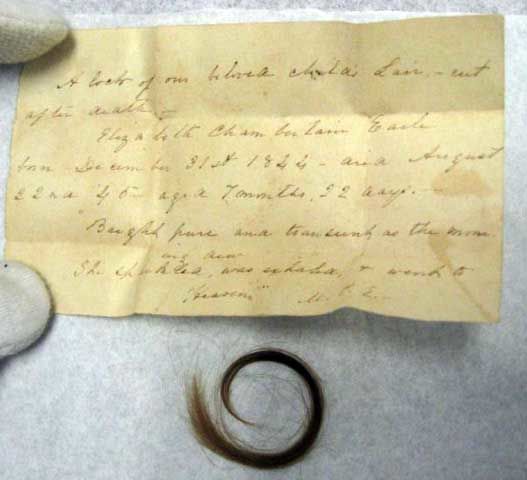 A lock of our beloved child's hair, - cut
after death. -
Elizabeth Chamberlain Earle
born December 31st 1844 - died August
22nd 45 - aged 7 months, 22 days. -
Bright pure and transient as the morn
ing dew
She sparkled, was exhaled, & went to
Heaven" M. P. E. -